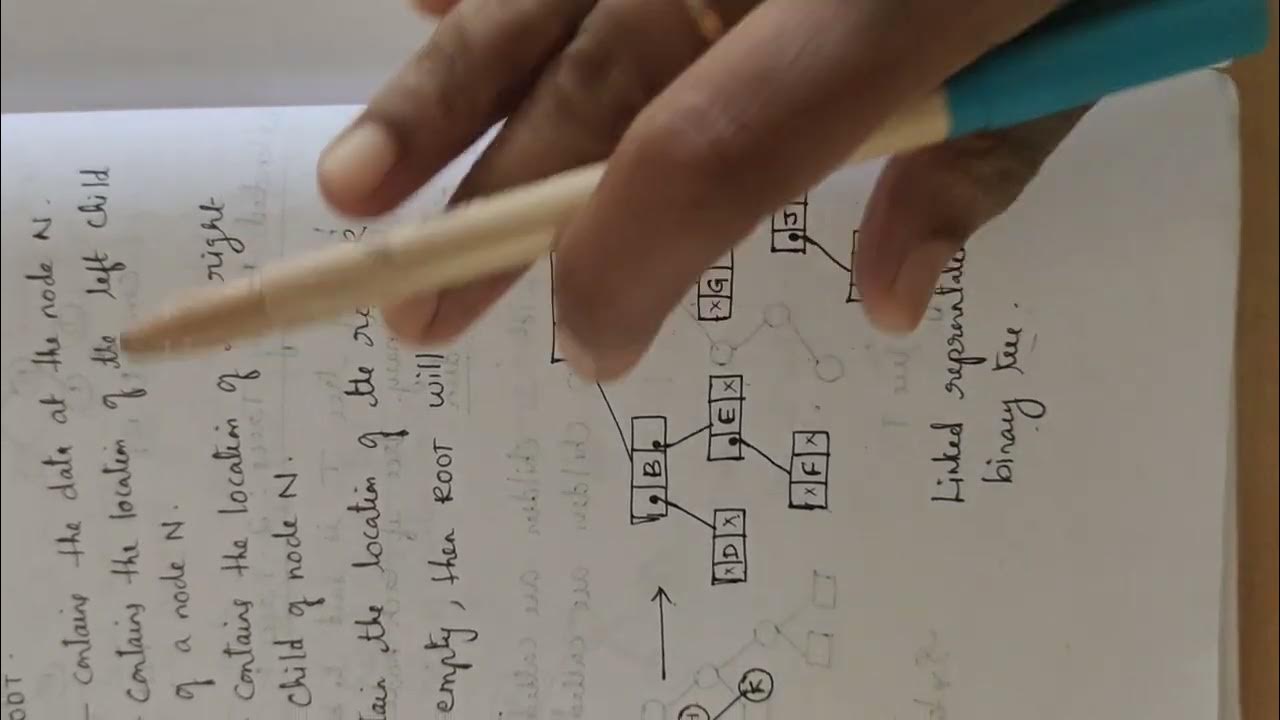 OOT.
- contains the data at the node N.
- contains the location of the left child
of a node N.
- contains the location of right
child of node N.
tain the location of the
empty, then ROOT will
B
x D x
E x
x F x
x G
J
H
K
Linked
binary tree.